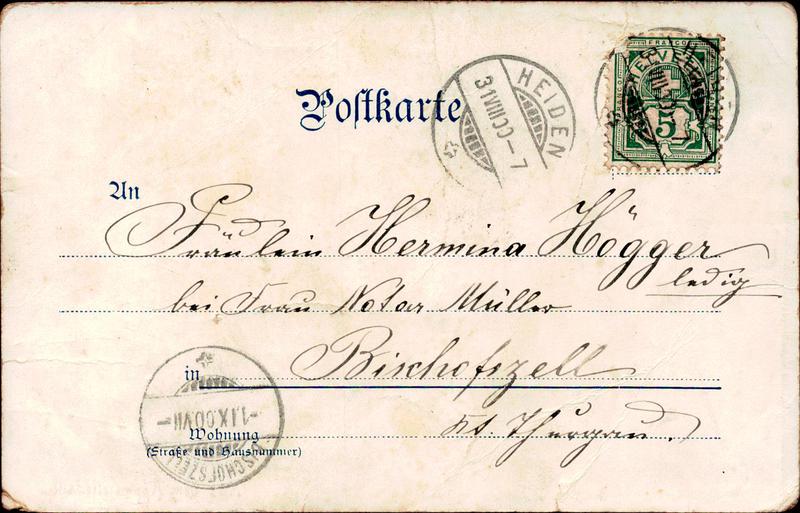 FRANCO
HELVETIA
5
Postkarte
HEIDEN
31 VIII 00 - 7
An
Fräulein Hermina Högger
ledig
bei Frau Notar Müller
in Bischofszell
Kt. Thurgau.
-1.IX.00.VII-
BISCHOFSZELL
Wohnung
(Straße und Hausnummer)